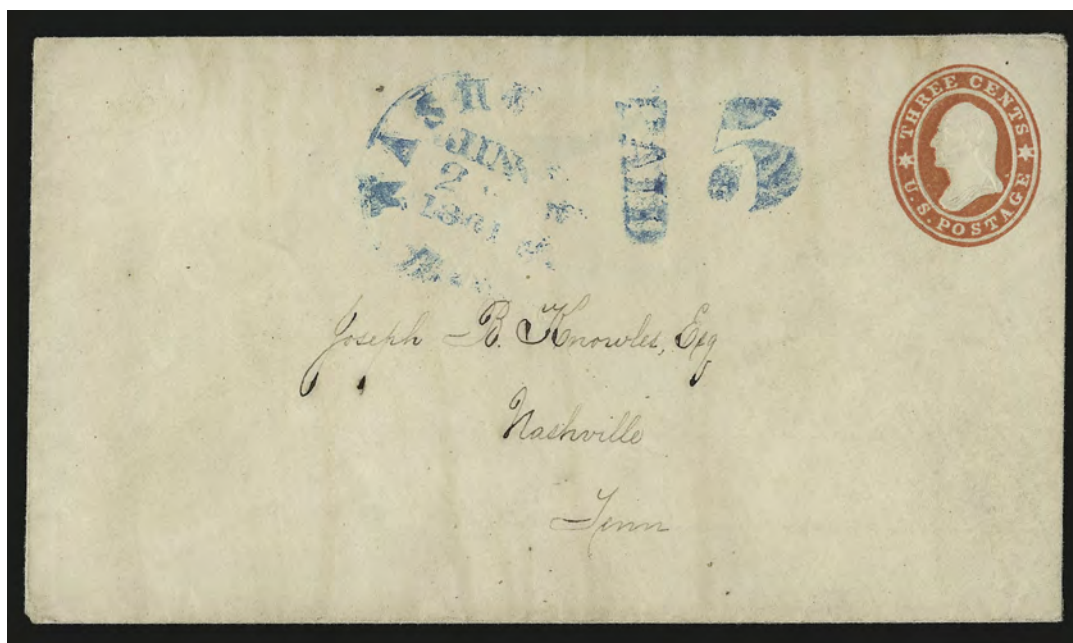 JUN
2
1861
PAID
5
THREE CENTS
U.S. POSTAGE
Joseph B. Knowles, Esq
Nashville
Tenn